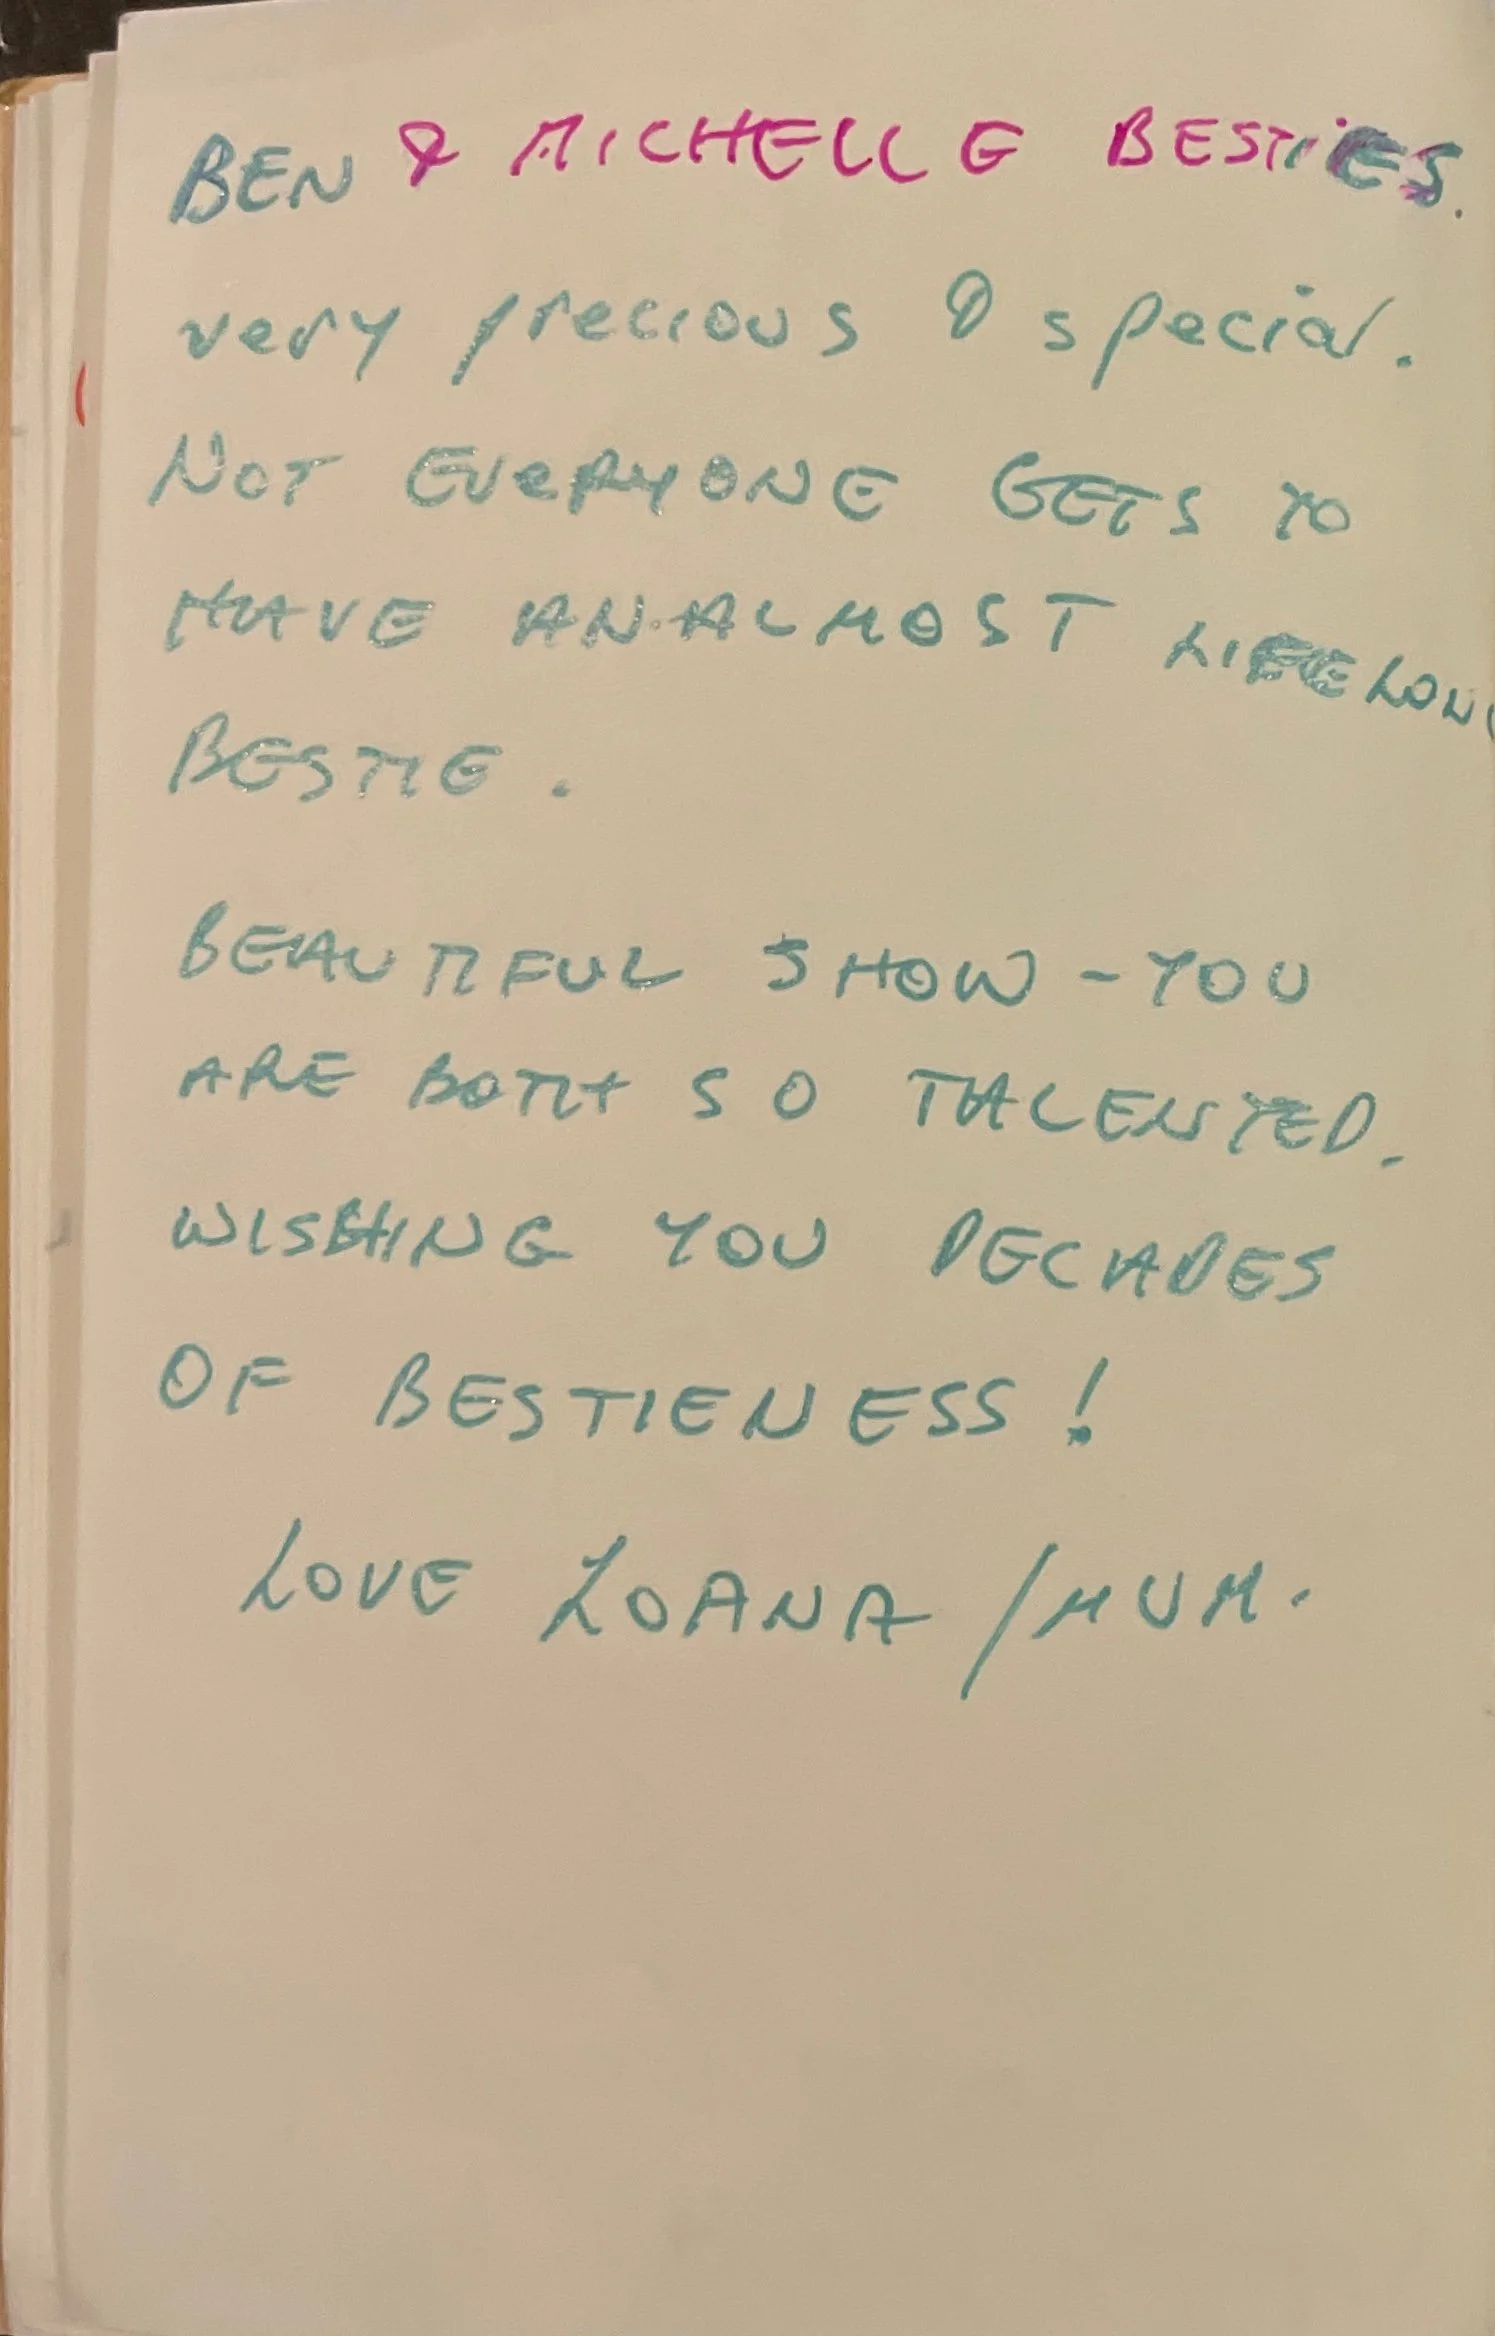 BEN & MICHELLE BESTIES.
very precious & special.
NOT EVERYONE GETS TO
HAVE AN ALMOST LIFELONG
BESTIE.
BEAUTIFUL SHOW - YOU
ARE BOTH SO TALENTED.
WISHING YOU DECADES
OF BESTIENESS!
LOVE LOANA / MUM.